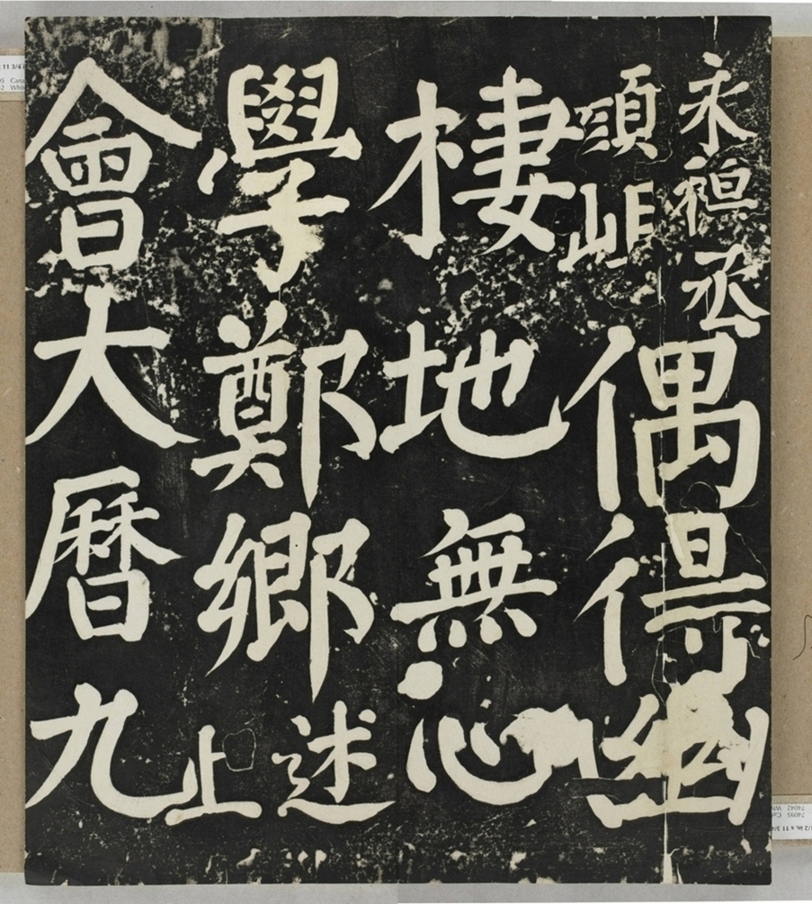 永穆丞
顏峴
偶得幽
棲地無心
學鄭鄉述上
會大曆九